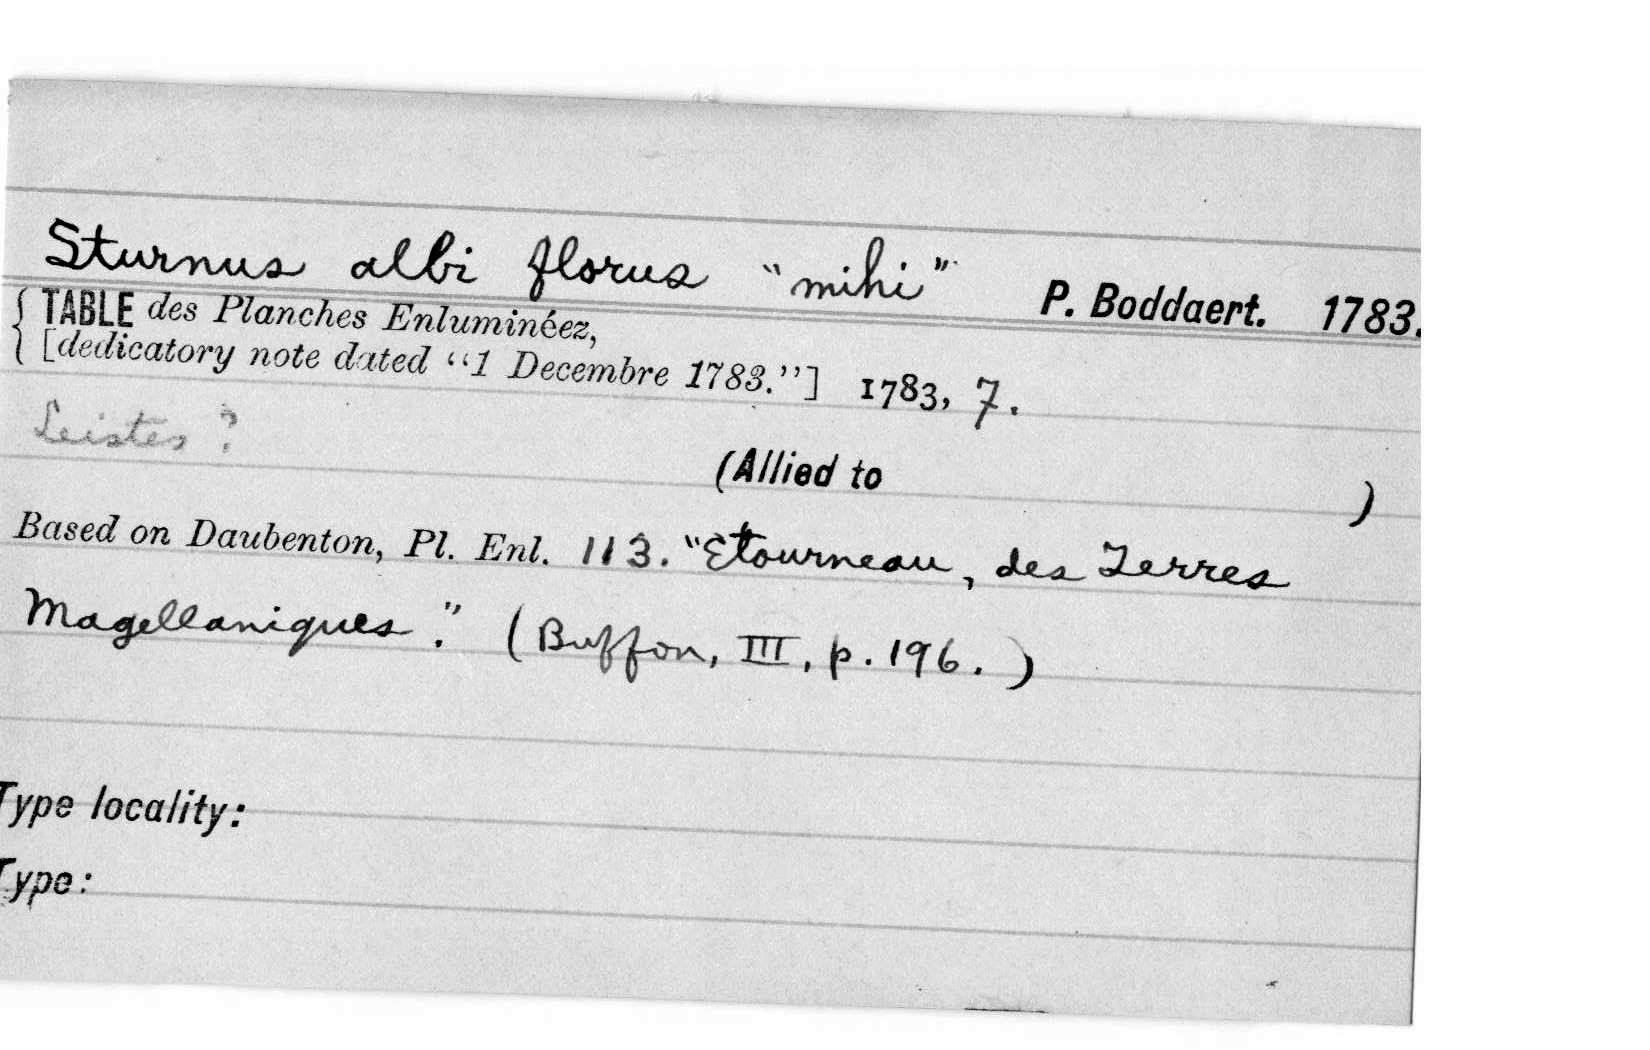 Sturnus albi florus "mihi" P. Boddaert. 1783.
TABLE des Planches Enluminéez,
[dedicatory note dated "1 Decembre 1783."] 1783, 7.
Leistes ?
(Allied to )
Based on Daubenton, Pl. Enl. 113. "Etourneau, des Terres
Magellaniques." (Buffon, III, p. 196.)
Type locality:
Type: